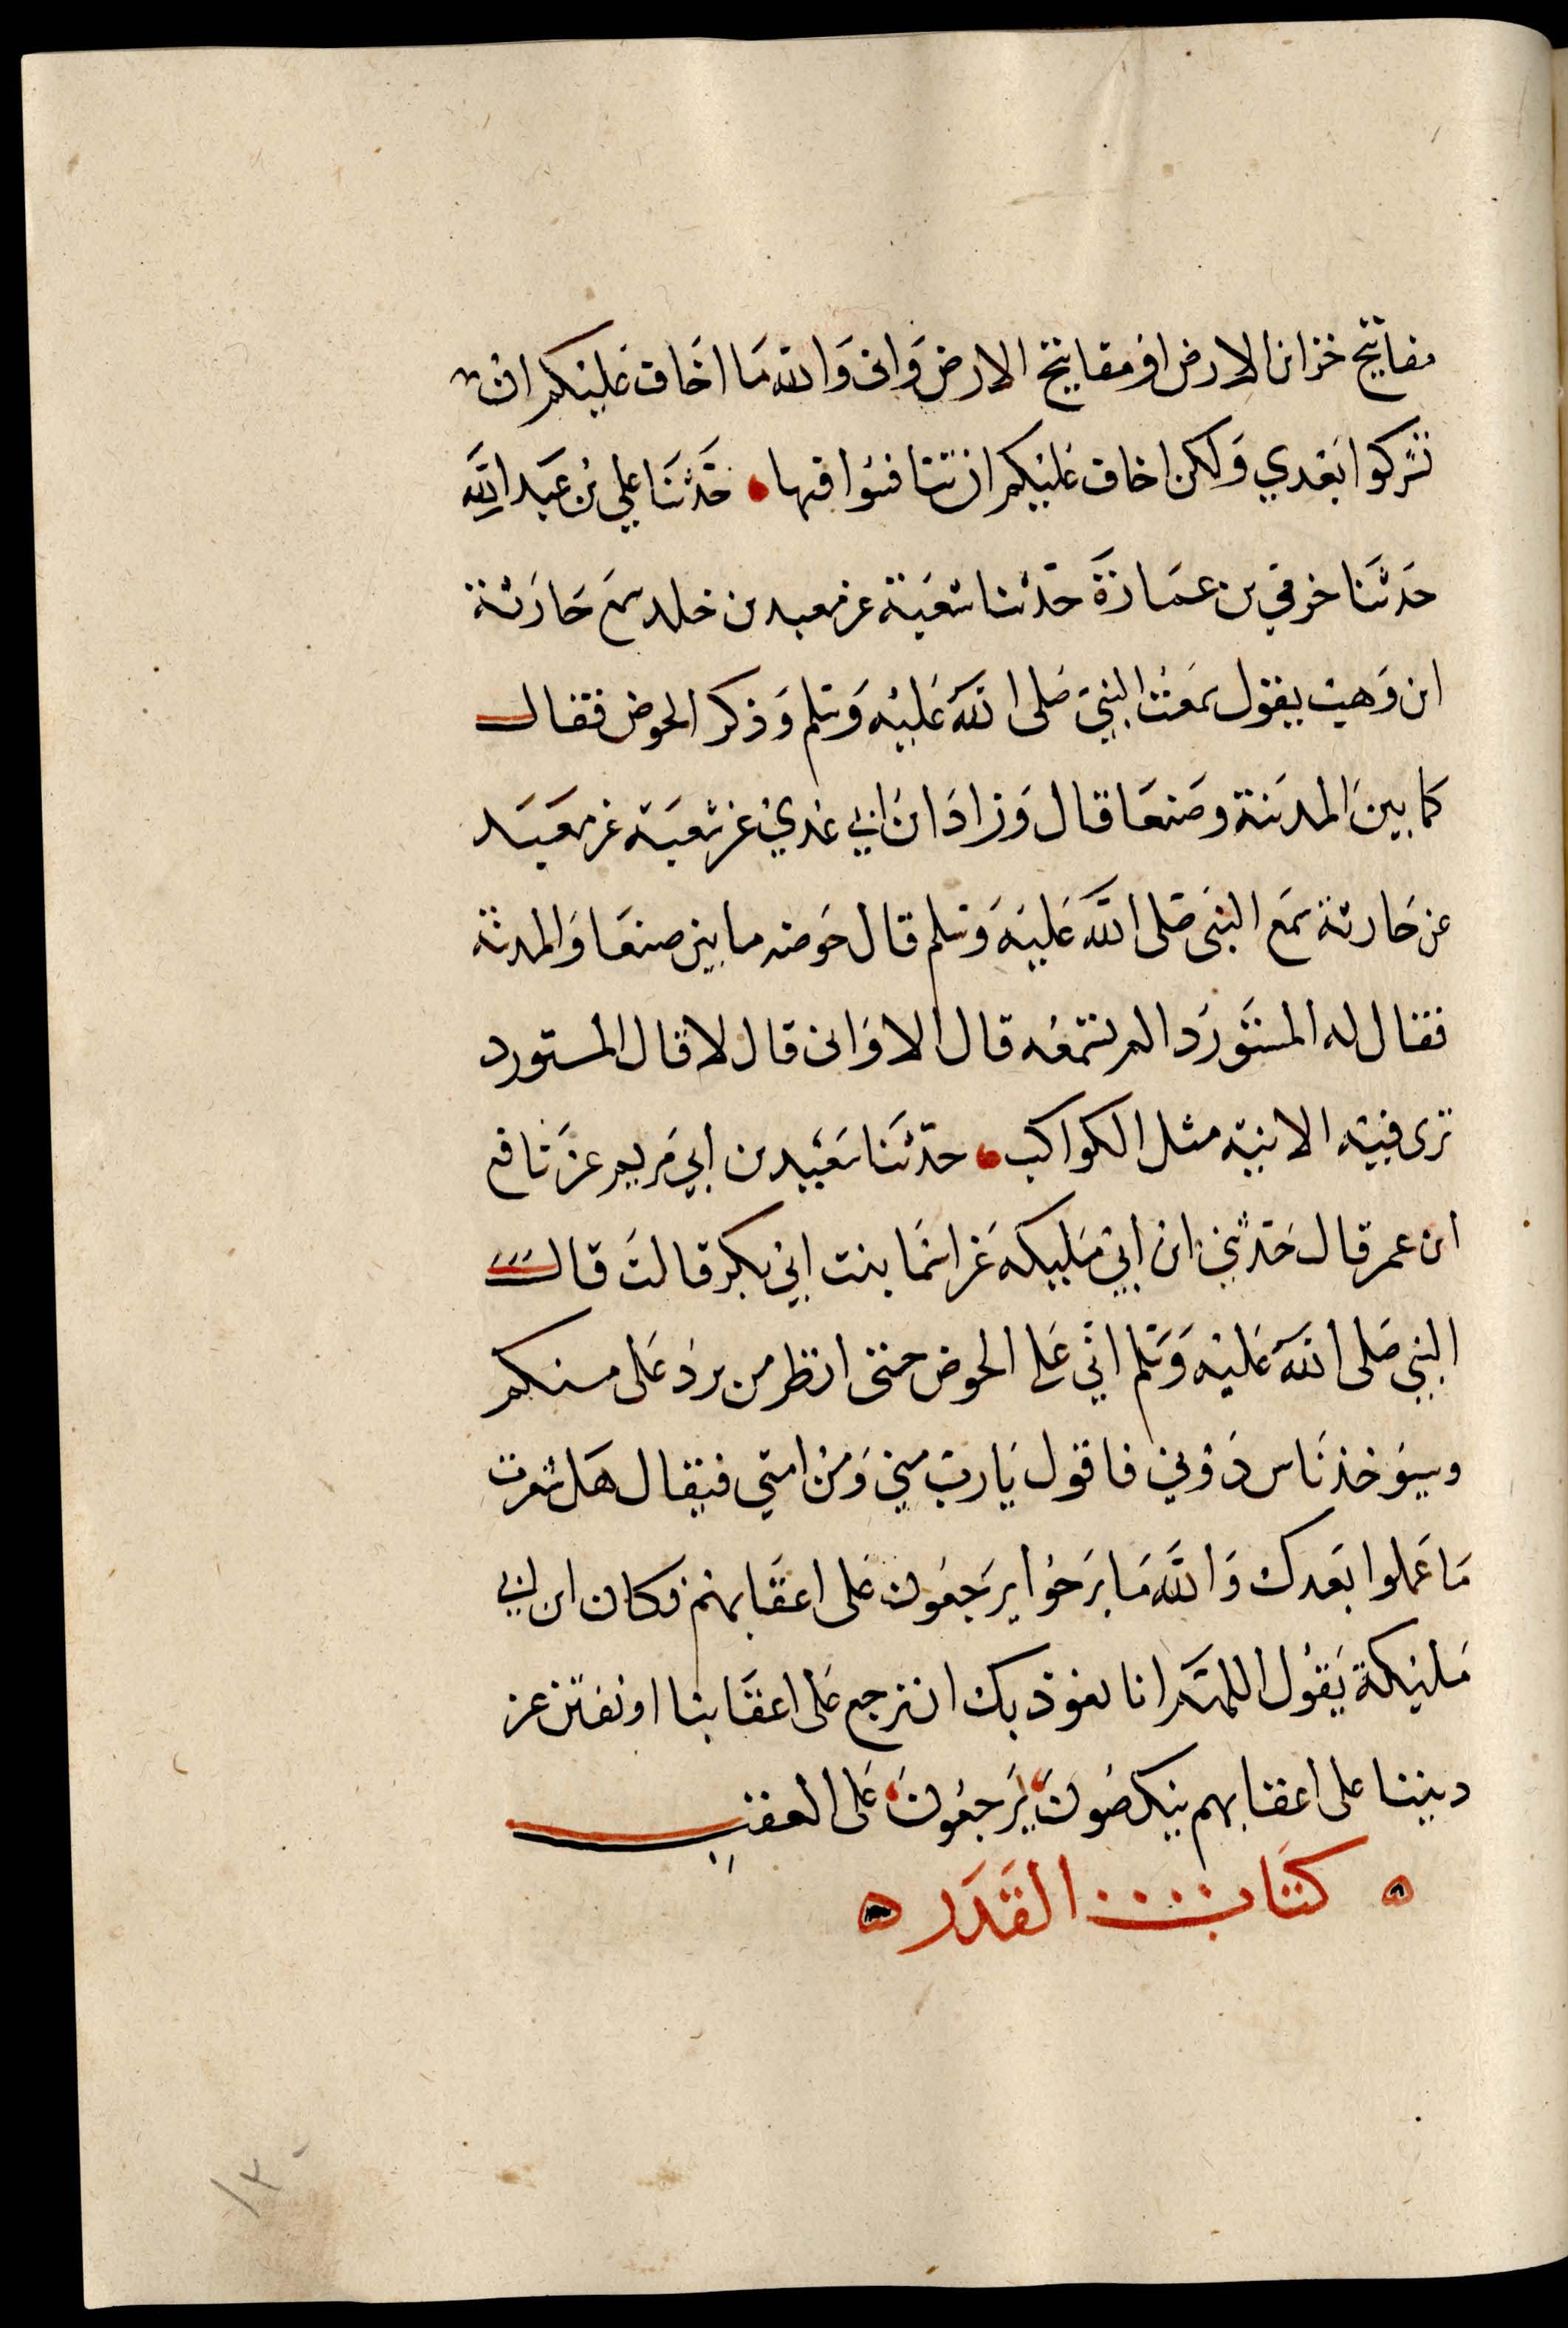 مفاتيح خزائن الارض او مفاتيح الارض واني والله ما اخاف عليكم ان
تشركوا بعدي ولكن اخاف عليكم ان تنافسوا فيها • حدثنا علي بن عبد الله
حدثنا حرمي بن عمارة حدثنا شعبة عن معبد بن خلد سمع حارثة
ابن وهب يقول سمعت النبي صلى الله عليه وسلم وذكر الحوض فقال
كما بين المدينة وصنعا قال وزاد ابن ابي عدي عن شعبة عن معبد
عن حارثة سمع النبي صلى الله عليه وسلم قال حوضه ما بين صنعا والمدينة
فقال له المستورد الم تسمعه قال الاواني قال لا قال المستورد
ترى فيه الانية مثل الكواكب • حدثنا سعيد بن ابي مريم عن نافع
ابن عمر قال حدثني ابن ابي مليكه عن اسما بنت ابي بكر قالت قال
النبي صلى الله عليه وسلم اني على الحوض حتى انظر من يرد على منكم
وسيؤخذ ناس دوني فاقول يا رب مني ومن امتي فيقال هل شعرت
ما عملوا بعدك والله ما برحوا يرجعون على اعقابهم فكان ابن ابي
مليكة يقول اللهم انا نعوذ بك ان نرجع على اعقابنا او نفتن عن
ديننا على اعقابهم ينكصون يرجعون على العقب
كتاب القدر
١٢٠